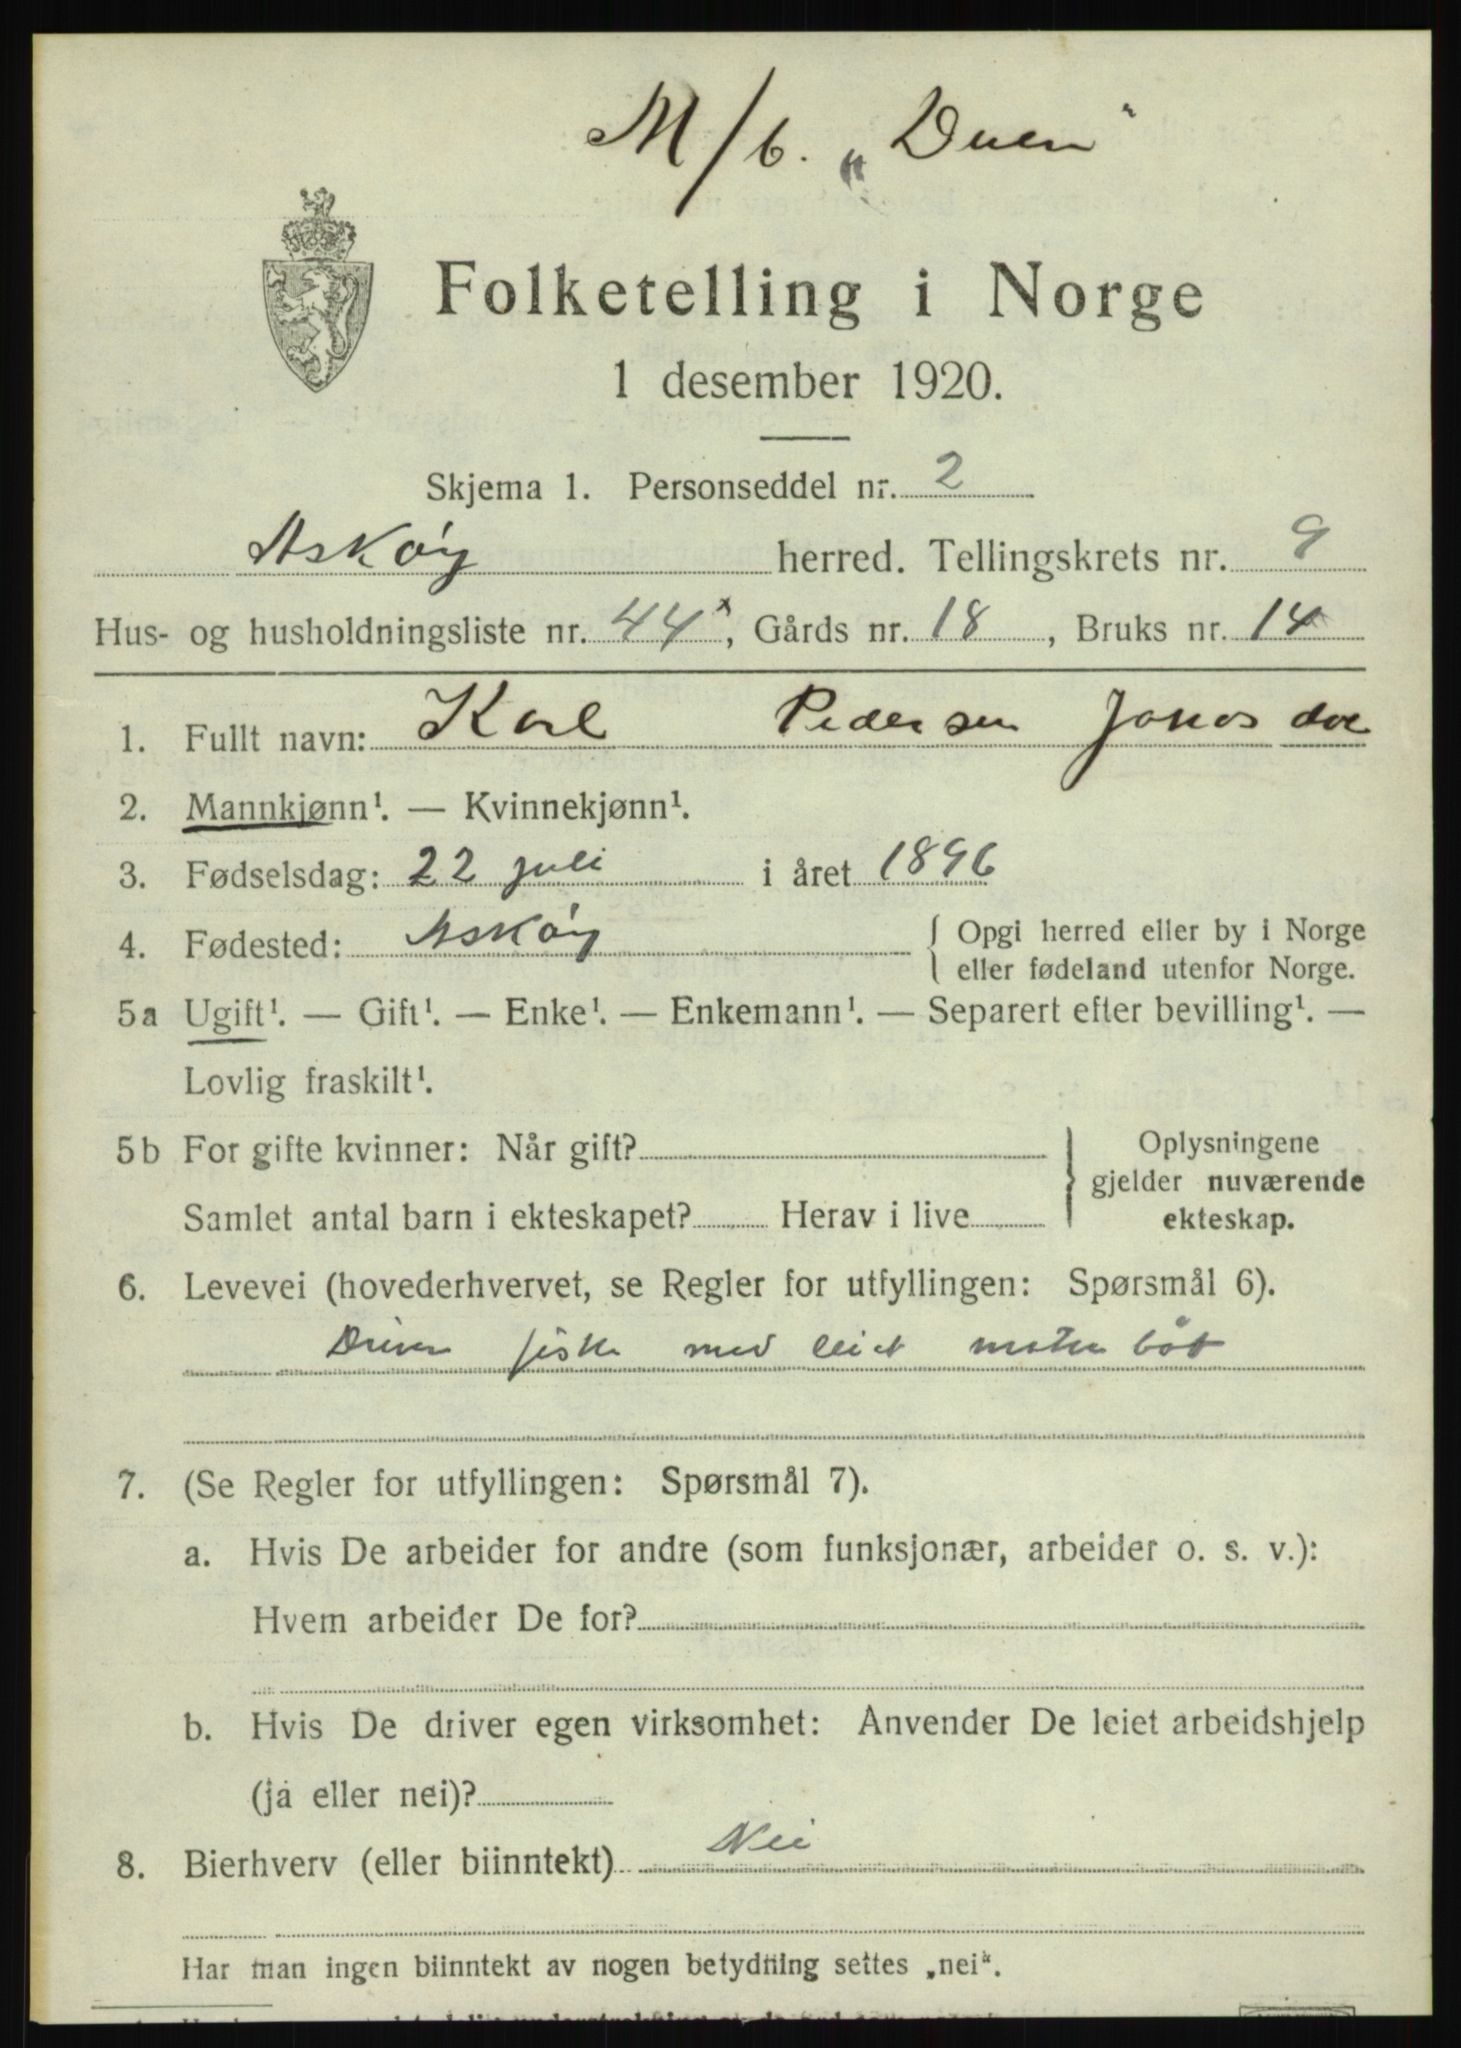 M/b. „Duen"
Folketelling i Norge
1 desember 1920.
Skjema 1. Personseddel nr. 2
Askøy herred. Tellingskrets nr. 9
Hus- og husholdningsliste nr. 44x, Gårds nr. 18, Bruks nr. 14
1. Fullt navn: Karl Pedersen
2. Mannkjønn¹. — Kvinnekjønn¹.
3. Fødselsdag: 22 juli i året 1896
4. Fødested: Askøy { Opgi herred eller by i Norge
eller fødeland utenfor Norge.
5a Ugift¹. — Gift¹. — Enke¹. — Enkemann¹. — Separert efter bevilling¹. —
Lovlig fraskilt¹.
5b For gifte kvinner: Når gift? } Oplysningene
gjelder nuværende
Samlet antal barn i ekteskapet? Herav i live
ekteskap.
6. Levevei (hovederhvervet, se Regler for utfyllingen: Spørsmål 6).
Driver fiske med leiet motor båt
7. (Se Regler for utfyllingen: Spørsmål 7).
a. Hvis De arbeider for andre (som funksjonær, arbeider o. s. v.):
Hvem arbeider De for?
b. Hvis De driver egen virksomhet: Anvender De leiet arbeidshjelp
(ja eller nei)?
8. Bierhverv (eller biinntekt) Nei
Har man ingen biinntekt av nogen betydning settes „nei".